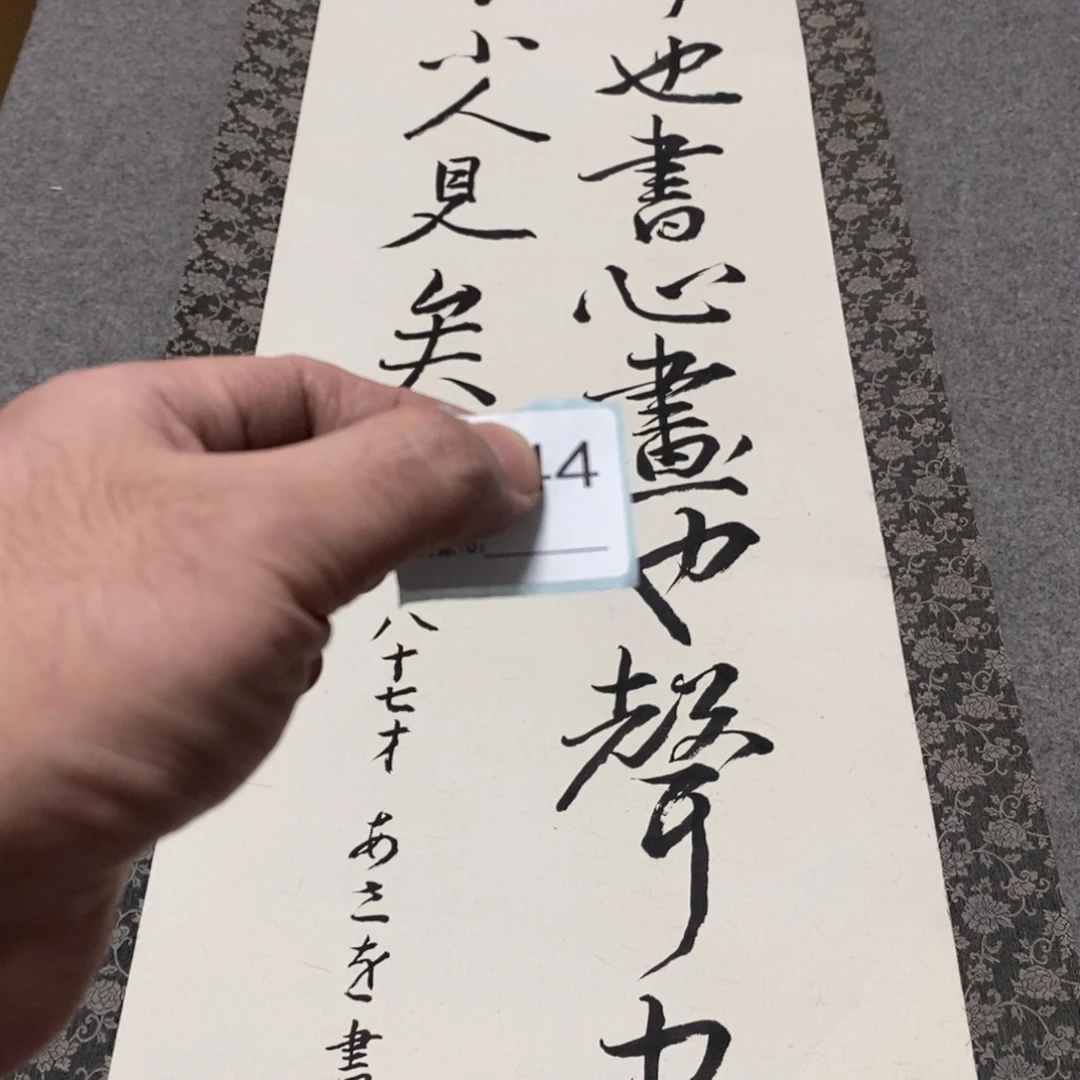 也書心畫也聲力
小人見矣
八十七才 あさを書
44